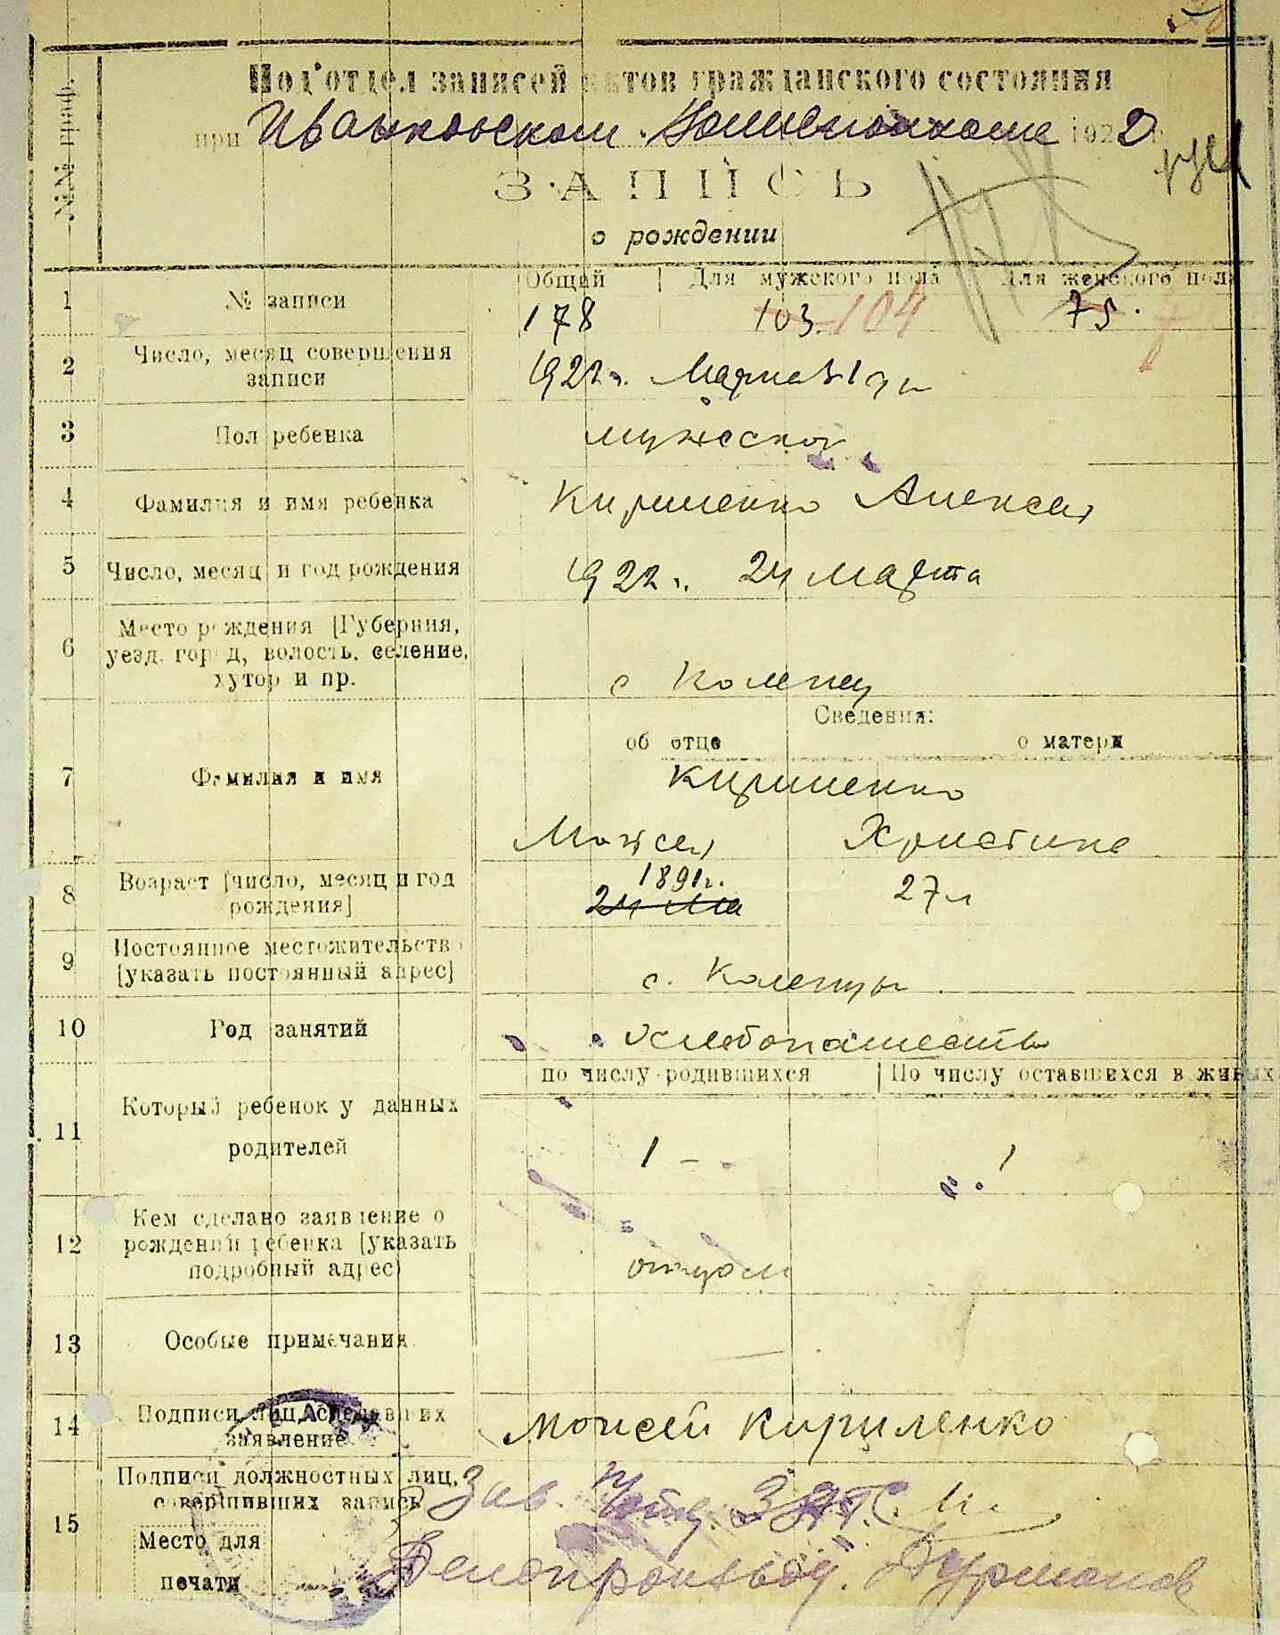 №№ граф.
Под'отдел записей актов гражданского состояния
при Иваньковском Волисполкоме 1922
ЗАПИСЬ
о рождении
Общий | Для мужского пола Для женского пола
1 № записи 178 103. 104 75.
2 Число, месяц совершения записи 1922 г. Марта 31 дн
3 Пол ребенка мужеской
4 Фамилия и имя ребенка Кириленко Алексей
5 Число, месяц и год рождения 1922 г. 24 марта
6 Место рождения [Губерния, уезд, город, волость, селение, хутор и пр. с Коленцы
Сведения:
об отце о матери
7 Фамилия и имя Кириленко
Моисей Христина
8 Возраст [число, месяц и год рождения] 24 Ма 1891 г. 27 л
9 Постоянное местожительство [указать постоянный адрес] с. Коленцы
10 Род занятий Хлебопашество
по числу родившихся | По числу оставшихся в живых
11 Который ребенок у данных родителей 1 – 1
12 Кем сделано заявление о рождении ребенка [указать подробный адрес] отцом
13 Особые примечания —
14 Подписи лиц, сделавших заявление Моисей Кириленко
15 Подписи должностных лиц, совершивших запись Зав. ЗАГС
Место для печати Делопроизвод.